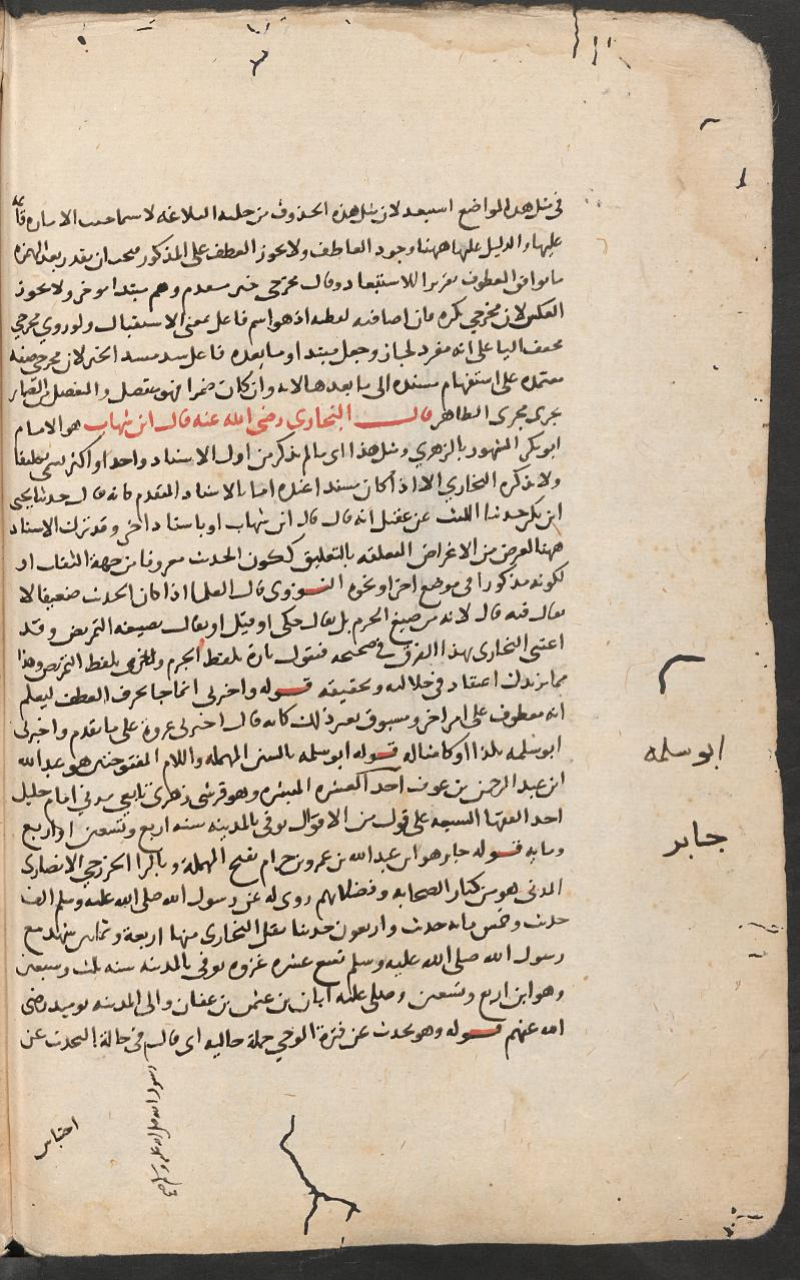 في مثل هذه المواضع استبعد لان مثل هذه الحذوف من حلية البلاغة لا سيما حيث الامارة قائمة
عليها والدليل عليها ههنا وجود العاطف ولا يجوز العطف على المذكور فيجب ان يقدر بعد الهمزة
ما يوافق المعطوف تقريرا للاستبعاد وقال مخرجي خبر مقدم وهم مبتدا موخر ولا يجوز
العكس لان مخرجي نكره فان اضافته لفظيه اذ هو اسم فاعل بمعنى الاستقبال ولو روي مخرجي
مخفف اليا على انه مفرد لجاز وجعل مبتدا وما بعده فاعل سد مسد الخبر لان مخرجي صفه
معتمده على استفهام مسنده الى ما بعدها لانه وان كان ضمرا فهو منفصل والمنفصل من الضماير
يجري مجرى الظاهر قال البخاري رضى الله عنه قال ابن شهاب هو الامام
ابو بكر المشهور بالزهري ومثل هذا اي ما لم يذكر من اول الاسناد واحد او اكثر يسمى تعليقا
ولا يذكره البخاري الا اذا كان مسندا عنده اما بالاسناد المتقدم كانه قال حدثنا يحيى
ابن بكير حدثنا الليث عن عقيل انه قال قال ابن شهاب او باسناد اخر وقد ترك الاسناد
ههنا لغرض من الاغراض المتعلقه بالتعليق ككون الحديث معروفا من جهة الثقات او
لكونه مذكورا في موضع اخر او نحوه النووى قال العلما اذا كان الحديث ضعيفا لا
يقال فيه قال لانه من صيغ الجزم بل يقال حكى او قيل او يقال بصيغه التمريض وقد
اعتنى البخارى بهذا الفرق في صحيحه فيقول تارة بلفظ الجزم واخرى بلفظ التمريض وهذا
مما يزيدك اعتقادا في جلالته وتحقيقه قوله واخبرني انما جا بحرف العطف ليعلم
انه معطوف على امر اخر ومسبوق بغير ذلك كانه قال اخبرني عروة على ما تقدم واخبرني
ابو سلمه بكذا او كذا قاله قوله ابو سلمه بالسين المهمله واللام المفتوحتين هو عبدالله
ابن عبد الرحمن بن عوف احد العشره المبشره وهو قرشي زهري تابعي مدني امام جليل
احد الفقها السبعه على قول من الاقوال توفى بالمدينه سنه اربع وتسعين او اربع
ومايه قوله جابر هو ابن عبدالله بن عمرو بن حرام بفتح المهملة وبالرا الخزرجي الانصاري
المدنى هو من كبار الصحابه وفضلائهم روى له عن رسول الله صلى الله عليه وسلم الف
حديث وخمس مايه حديث واربعون حديثا نقل البخارى منها اربعة وثمانين شهد مع
رسول الله صلى الله عليه وسلم تسع عشره غزوه توفى بالمدينه سنه ثلث وسبعين
وهو ابن اربع وتسعين وصلى عليه ابان بن عثمن بن عفان والى المدينه يوميذ رضى
الله عنهم قوله وهو يحدث عن فترة الوحي جملة حاليه اى قال في حالة التحديث عن
رسول الله صلى الله عليه وسلم
احتباس
ابو سلمه
جابر